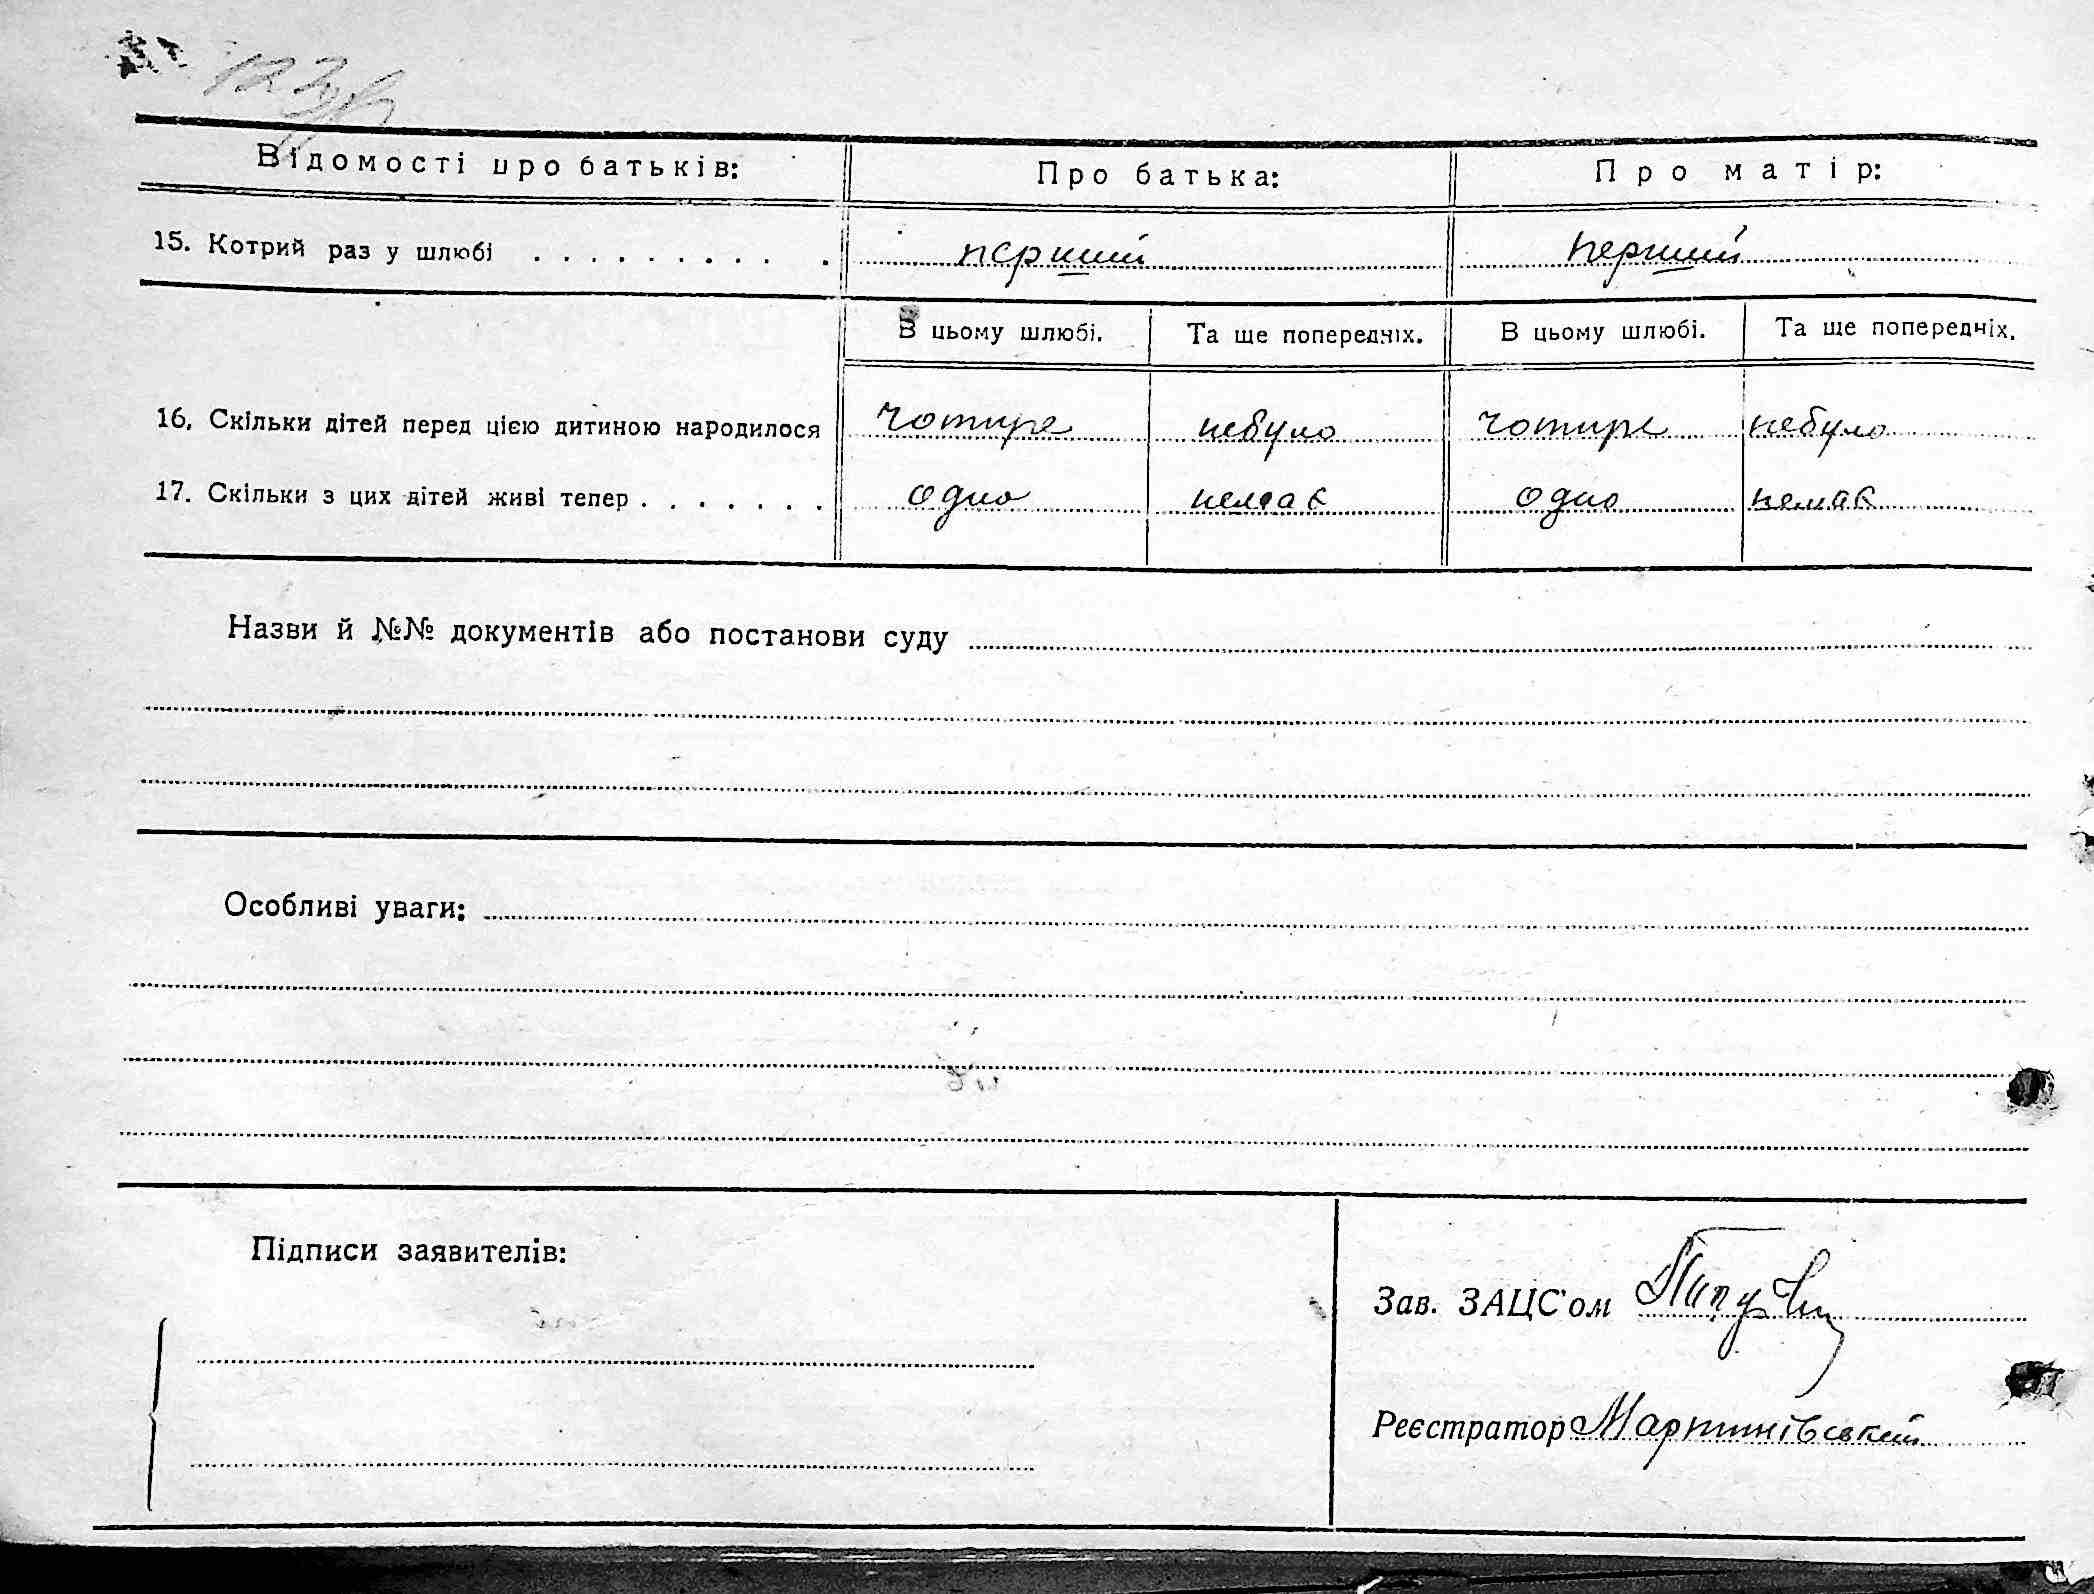 Відомості про батьків: Про батька: Про матір:
15. Котрий раз у шлюбі . . . . . . . . . . . перший перший
В цьому шлюбі. Та ще попередніх. В цьому шлюбі. Та ще попередніх.
16. Скільки дітей перед цією дитиною народилося чотире небуло чотире небуло
17. Скільки з цих дітей живі тепер . . . . . . . одно немає одно немає
Назви й №№ документів або постанови суду
Особливі уваги:
Підписи заявителів:
Зав. ЗАЦС'ом
Реєстратор Мартинівський